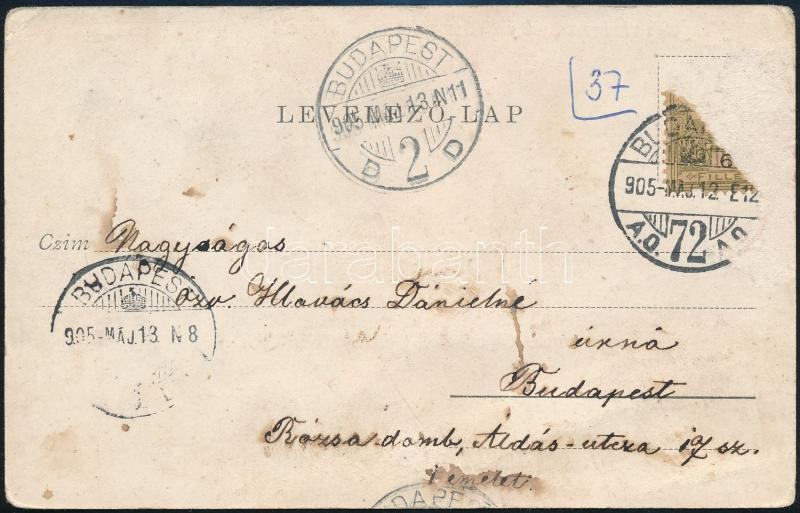 BUDAPEST
905-MÁJ.13.N11
D 2 D
37
LEVELEZŐ-LAP
6
FILLÉ
905-MÁJ.12. É12
A.O. 72 A.O.
Czim Nagyságos
özv. Hlavács Dánielné
úrnő
Budapest
Rózsa domb, Áldás-utcza 17 sz.
I emelet.
BUDAPEST
905-MÁJ.13. N8
BUDAPEST
darabanth